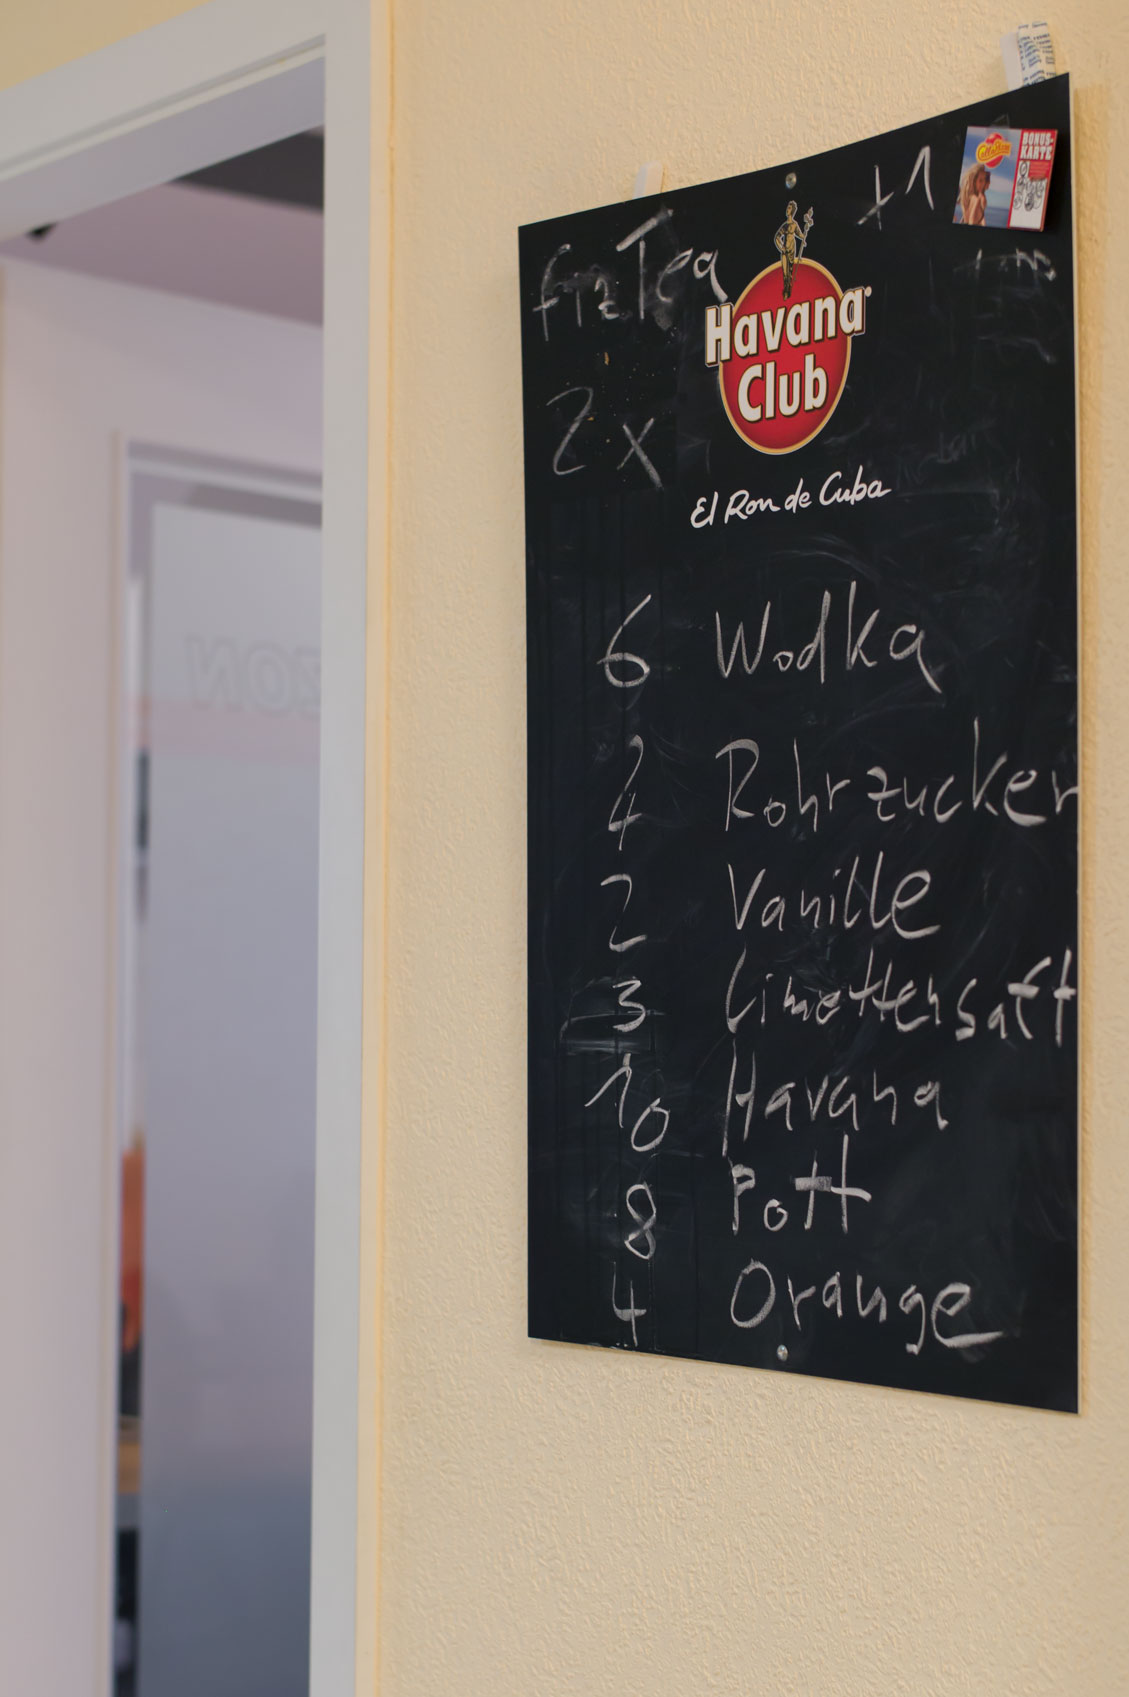 +1
BONUS-
KARTE
fizTea
Havana
Club
2x
El Ron de Cuba
6 Wodka
2
4 Rohrzucker
2 Vanille
3 Limettensaft
10 Havana
8 Pott
4 Orange
ZON